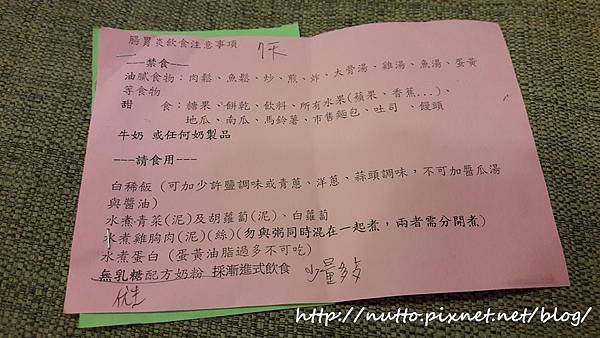 腸胃炎飲食注意事項
7天
---禁食---
油膩食物：肉鬆、魚鬆、炒、煎、炸、大骨湯、雞湯、魚湯、蛋黃
等食物
甜　　食：糖果、餅乾、飲料、所有水果(蘋果、香蕉...)、
地瓜、南瓜、馬鈴薯、市售麵包、吐司、饅頭
牛奶 或任何奶製品
---請食用---
白稀飯 (可加少許鹽調味或青蔥、洋蔥、蒜頭調味，不可加醬瓜湯
與醬油)
水煮青菜(泥)及胡蘿蔔(泥)、白蘿蔔
水煮雞胸肉(泥)(絲)(勿與粥同時混在一起煮，兩者需分開煮)
水煮蛋白 (蛋黃油脂過多不可吃)
無乳糖配方奶粉 採漸進式飲食 少量多多
http://nutto.pixnet.net/blog/